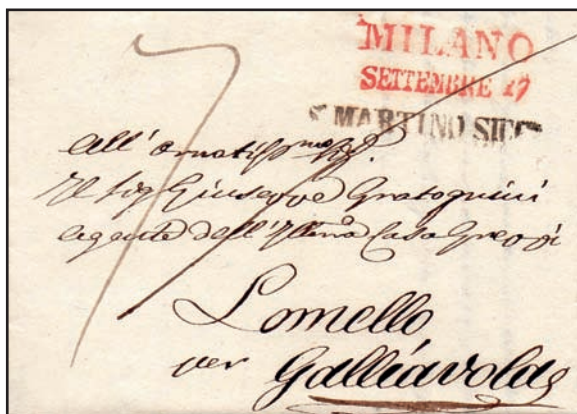 MILANO
SETTEMBRE 17
S. MARTINO SICC
All' ornatiss.mo Sig.
Il Sig Giuseppe Gratognini
agente dell'Illma Casa Greppi
Lomello
per Galliavola
7